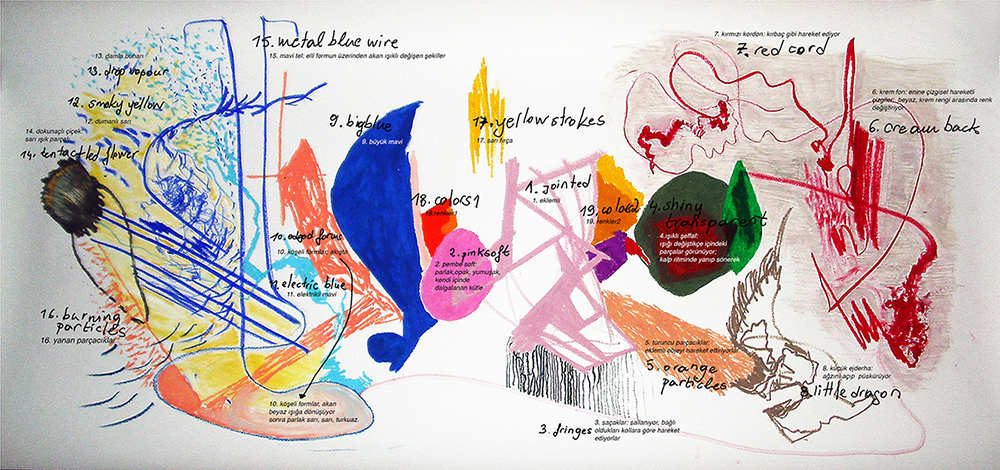 7. kırmızı kordon: kırbaç gibi hareket ediyor
7. red cord
15. metal blue wire
15. mavi tel: elli formun üzerinden akan ışıklı değişen şekiller
13. damla buharı
13. drop vapour
12. smoky yellow
12. dumanlı sarı
14. dokunaçlı çiçek:
sarı ışık
14. tentactled flower
9. bigblue
9. büyük mavi
17. yellow strokes
17. sarı fırça
6. krem fon: enine çizgisel hareketli
çizgiler: beyaz, krem rengi arasında renk
değiştiriyor
6. cream back
18. colors1
18.renkler1
1. jointed
1. eklemli
19.
19. renkler2
4. shiny
transparent
4.ışıklı şeffaf:
ışığı değiştikçe içindeki
parçalar görünüyor;
kalp ritminde yanıp sönerek
10. edged forms
10. köşeli formlar, akışta
2. pinksoft
2. pembe soft:
parlak,opak, yumuşak,
kendi içinde
dalgalanan kütle
11. electric blue
11. elektrikli mavi
16. burning
particles
16. yanan parçacıklar
5. turuncu parçacıklar:
eklemli objeyi hareket ettiriyorlar
5. orange
particles
8. küçük ejderha:
ağzını açıp püskürüyor
8. little dragon
10. köşeli formlar, akan
beyaz ışığa dönüşüyor
sonra parlak sarı, sarı, turkuaz.
3. fringes
3. saçaklar: sallanıyor, bağlı
oldukları kollara göre hareket
ediyorlar